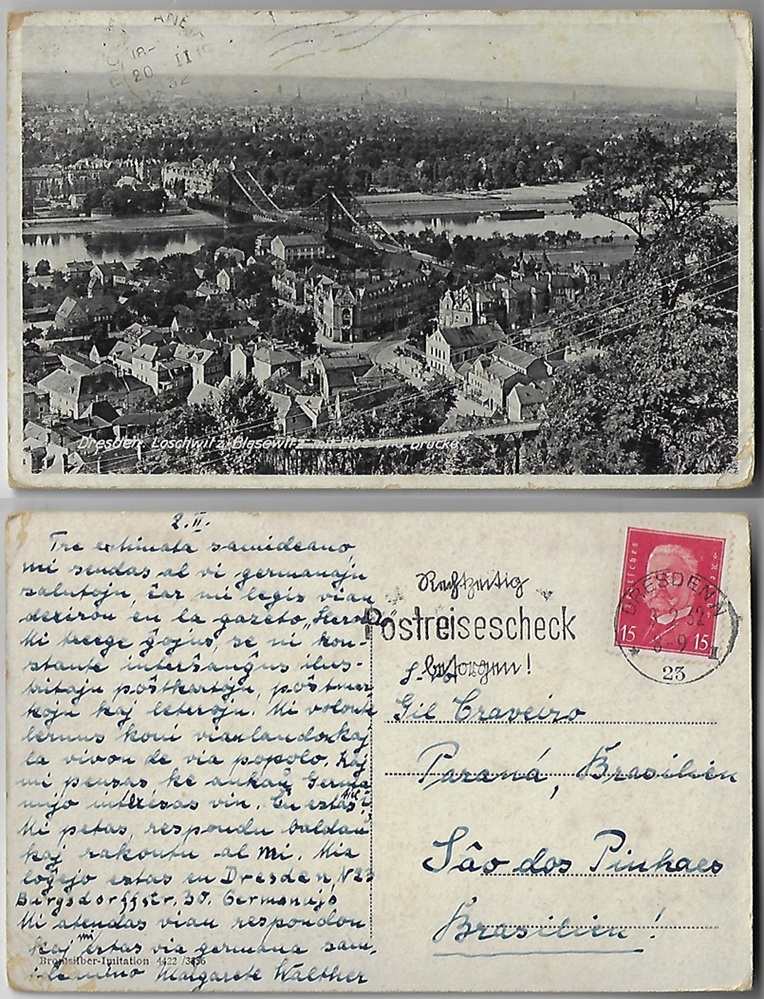 20 II
32
Dresden, Loschwitz-Blasewitz mit Elbe und Brücke
2. II.
Tre estimata samideano,
mi sendas al vi germanajn
salutojn, ĉar mi legis vian
deziron en la gazeto, Heroldo
Mi treege ĝojus, se ni kon-
stante interŝanĝus ilus-
tritajn poŝtkartojn, poŝtmar
kojn kaj leterojn. Mi volonte
lernus koni vian landon kaj
la vivon de via popolo. Kaj
mi pensas, ke ankaŭ Germa
nujo interesas vin. Ĉu estas tiel?
Mi petas, respondu baldaŭ
kaj rakontu al mi. Mia
loĝejo estas en Dresden, N 23
Bürgsdorffstr. 30. Germanujo
Mi atendas vian respondon
kaj mi estas via germana sam-
ideanino Margarete Walther
Bromsilber-Imitation 4422 /3896
Rechtzeitig
Postreisescheck
besorgen!
DRESDEN N
2.32
23
15 15
S-ro
Gil Craveiro
Paraná, Brasilien
São dos Pinhaes
Brasilien!